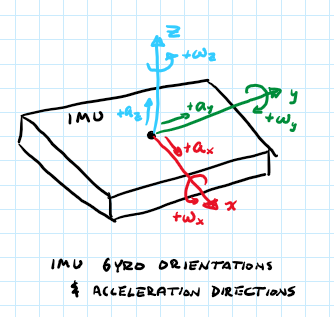 z
+ωz
IMU
+az
+ay
y
+ωy
+ax
+ωx
x
IMU GYRO ORIENTATIONS
& ACCELERATION DIRECTIONS